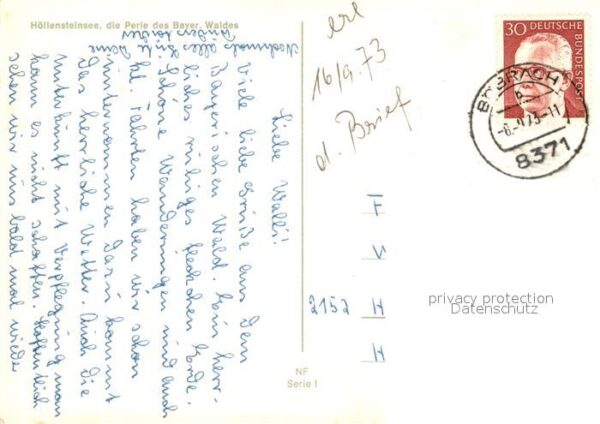 Höllensteinsee, die Perle des Bayer. Waldes
Nochmals alles Gute Deine
Liebe Walli!
Viele liebe Grüße aus dem
Bayerischen Wald. Ein herr-
liches ruhiges Fleckchen Erde.
Schöne Wanderungen und auch
kl. Fahrten haben wir schon
unternommen. Dazu kommt
das herrliche Wetter. Auch die
Unterkunft mit Verpflegung man
kann es nicht schaffen. Hoffentlich
sehen wir uns bald mal wieder
erl
16/9.73
d. Brief
30 DEUTSCHE BUNDESPOST
BIBRACH
b
-6.-9.73-11
8371
F
V
2152 H
H
privacy protection
Datenschutz
NF
Serie I